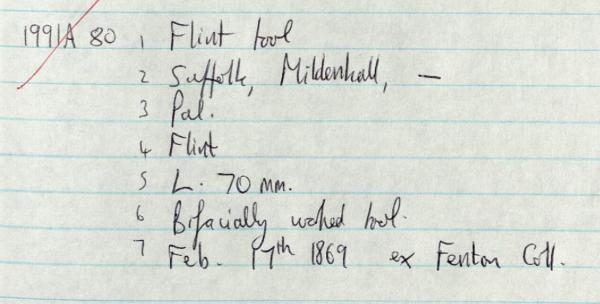 1991A 80 1 Flint tool
2 Suffolk, Mildenhall, —
3 Pal.
4 Flint
5 L. 70 mm.
6 Bifacially worked tool.
7 Feb. 17th 1869 ex Fenton Coll.